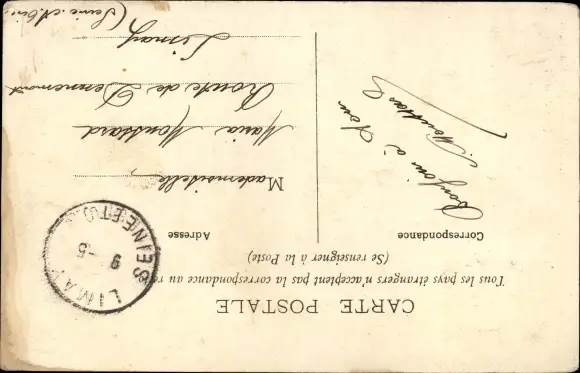 CARTE POSTALE
Tous les pays étrangers n'acceptent pas la correspondance au
(Se renseigner à la Poste)
Correspondance
Adresse
Bonjour à
Mademoiselle
Maria
Route de Dennemont
Limay
(Seine &
LIMAY
9 -5
SEINE ET O